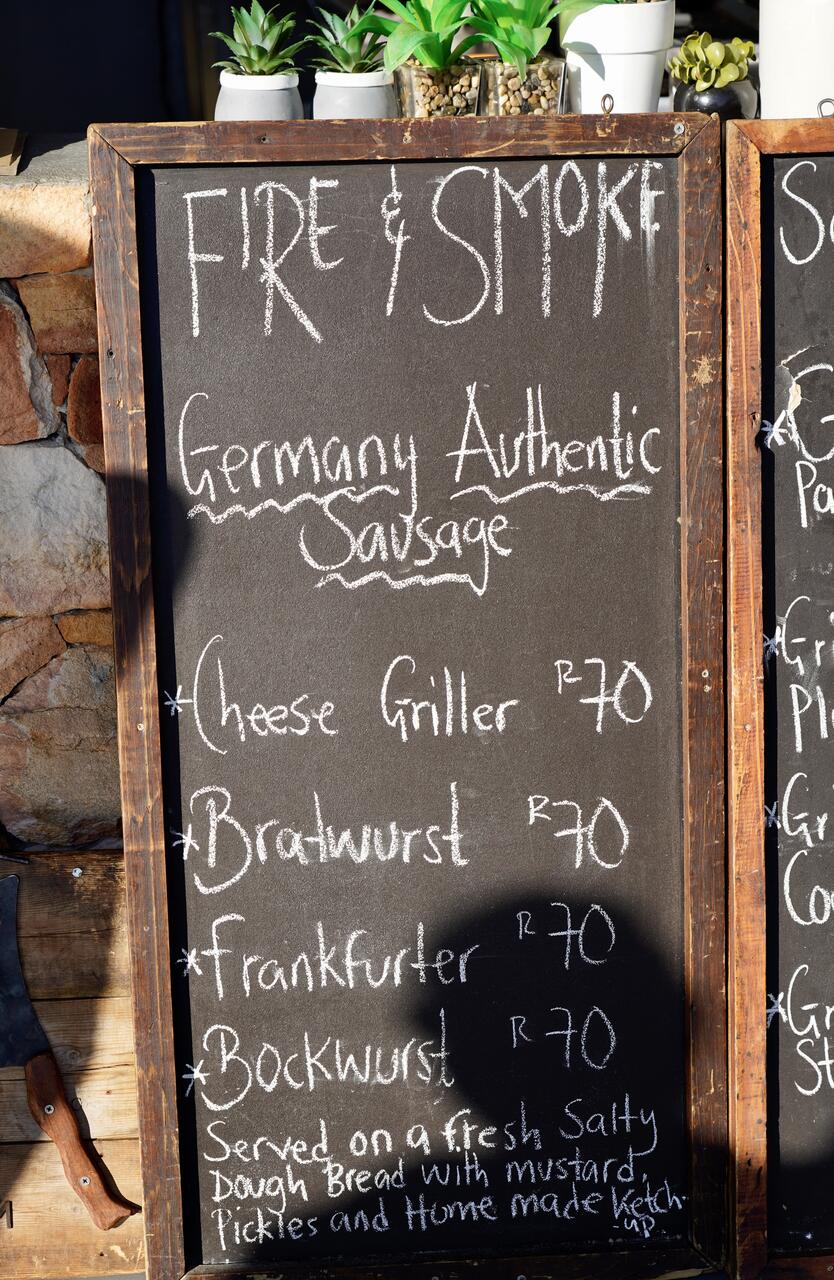 FIRE & SMOKE
Germany Authentic
Sausage
*Cheese Griller R70
*Bratwurst R70
*Frankfurter R70
*Bockwurst R70
Served on a fresh Salty
Dough Bread with mustard,
Pickles and Home made Ketch-
-up
*
*Gri
*Gr
*Gr